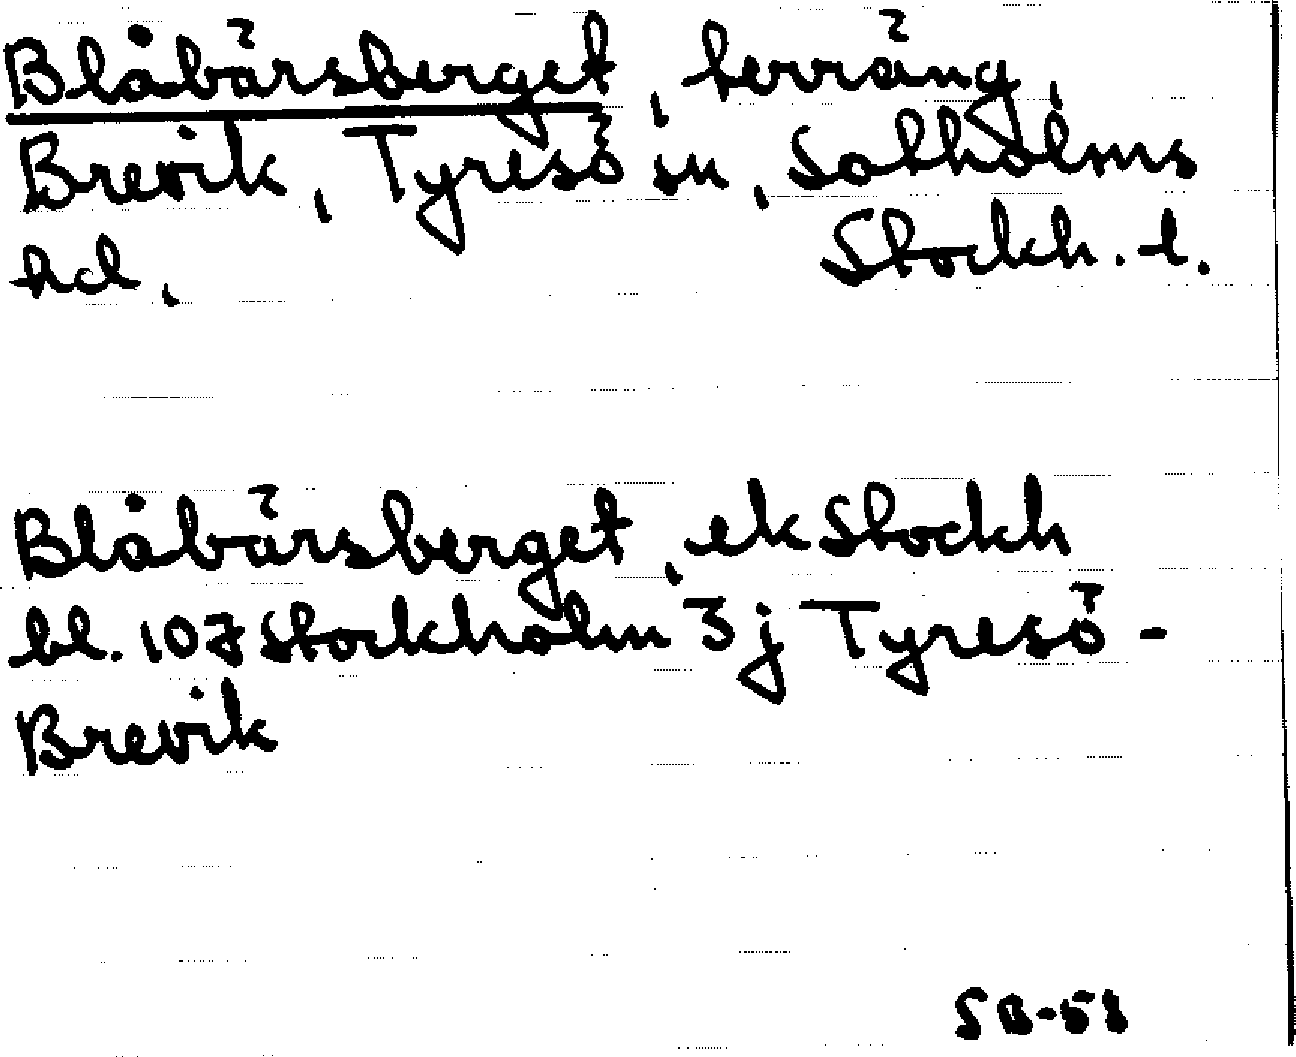 Blåbärsberget, terräng,
Brevik, Tyresö sn, Sotholms
hd, Stockh. l.
Blåbärsberget, ek Stockh
bl. 107 Stockholm 3 j Tyresö -
Brevik
SB-58